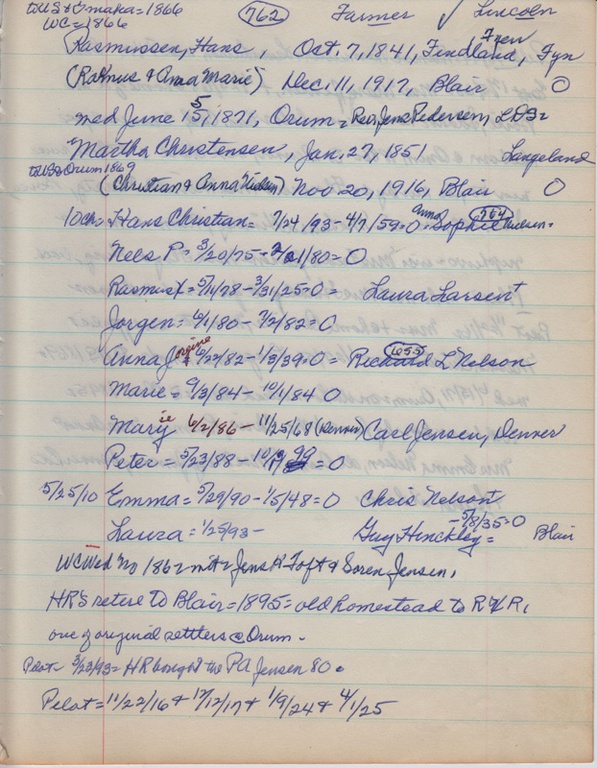 to US & Omaha = 1866 762 Farmer ✓ Lincoln
WC = 1866
Rasmussen, Hans, Oct. 7, 1841, Findland, Fyen Fyn
(Rasmus & Anna Marie) Dec. 11, 1917, Blair O
med June 5, 1871, Orum = Rev. Jens Pedersen, LDS =
Martha Christensen, Jan. 27, 1851 Langeland
to US & Orum 1869
(Christian & Anna Nielsen) Nov 20, 1916, Blair O
10 ch = Hans Christian = 7/24/93 - 4/7/59 = O = Anna Sophie Nielsen = 764
Nels P = 3/20/75 = /21/80 = O
Rasmus = 5/11/78 - 3/31/25 = O = Laura Larsen
Jorgen = 6/1/80 - 7/2/82 = O
Anna Jorgine 6/22/82 - 1/3/39 = O = Richard L Nelson 655
Marie = 9/3/84 - 10/1/84 O
Maryie 6/2/86 - 11/25/68 (Denver) Carl Jensen, Denver
Peter = 5/23/88 - 99 = O
5/25/10 Emma = 5/29/90 - 1/5/48 = O Chris Nelson
Laura = 1/25/93 - Guy Hinckley = - 5/8/35 = O Blair
WC Wed No 1862 = Jens P Toft & Soren Jensen,
HR's retire to Blair = 1895 = old homestead to R & R,
one of original settlers @ Orum.
Pilot = 3/23/93 = HR bought the PA Jensen 80.
Pilot = 11/22/16 & 12/12/17 & 1/9/24 & 4/1/25